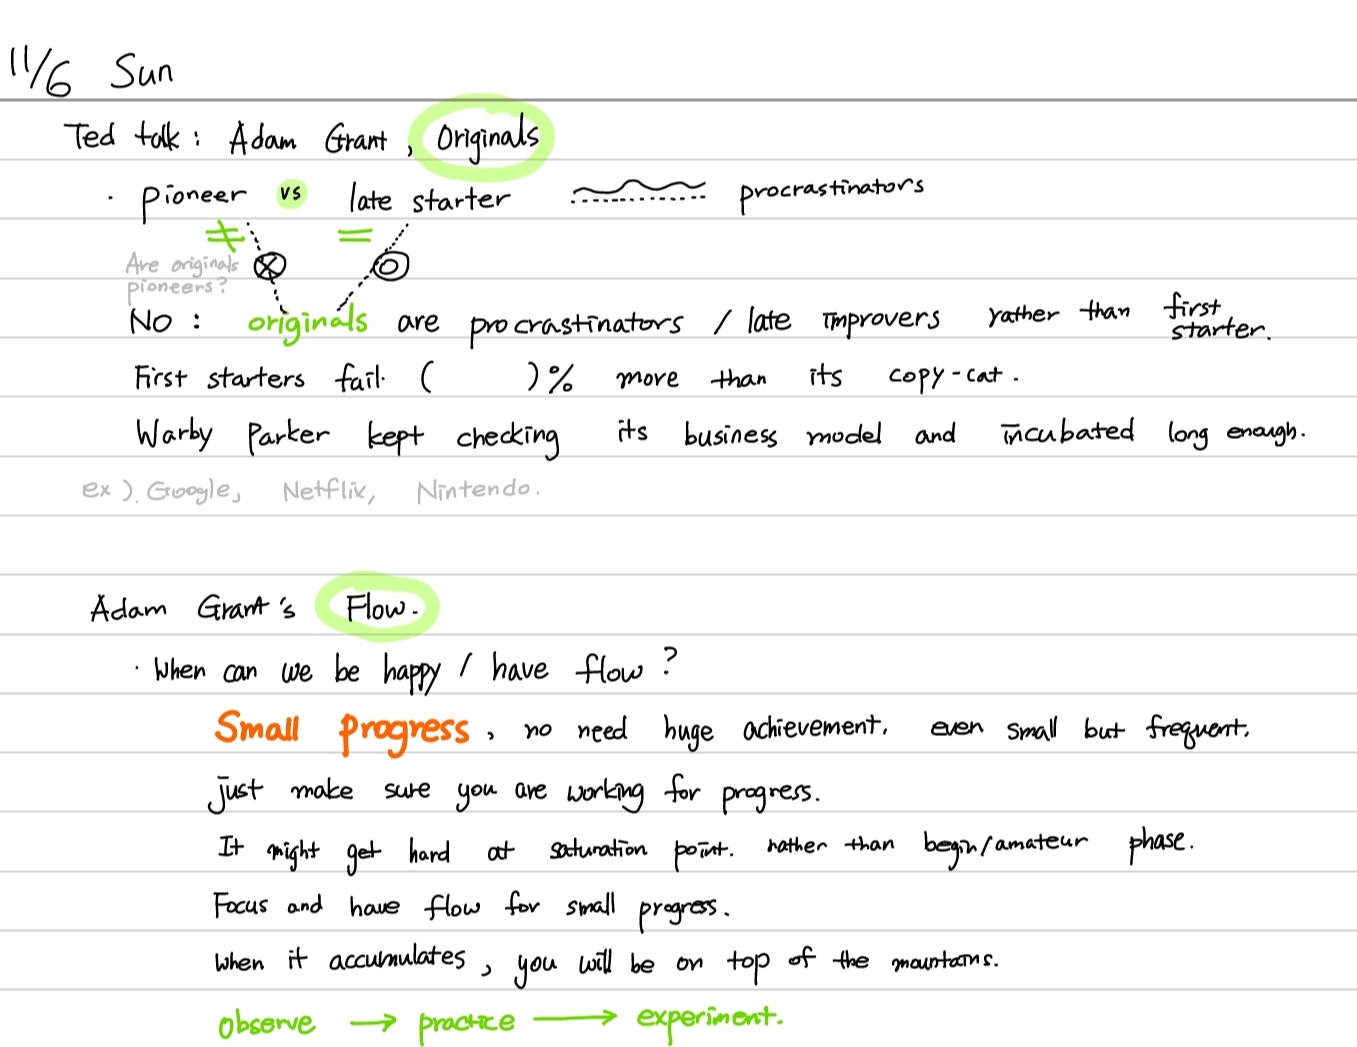 11/6 Sun
Ted talk: Adam Grant, Originals
· pioneer vs late starter procrastinators
≠ =
Are originals
pioneers?
No: originals are procrastinators / late improvers rather than first starter.
First starters fail ( )% more than its copy-cat.
Warby Parker kept checking its business model and incubated long enough.
ex). Google, Netflix, Nintendo.
Adam Grant's Flow.
· When can we be happy / have flow?
Small progress, no need huge achievement. even small but frequent.
just make sure you are working for progress.
It might get hard at saturation point. rather than begin/amateur phase.
Focus and have flow for small progress.
When it accumulates, you will be on top of the mountains.
observe → practice → experiment.